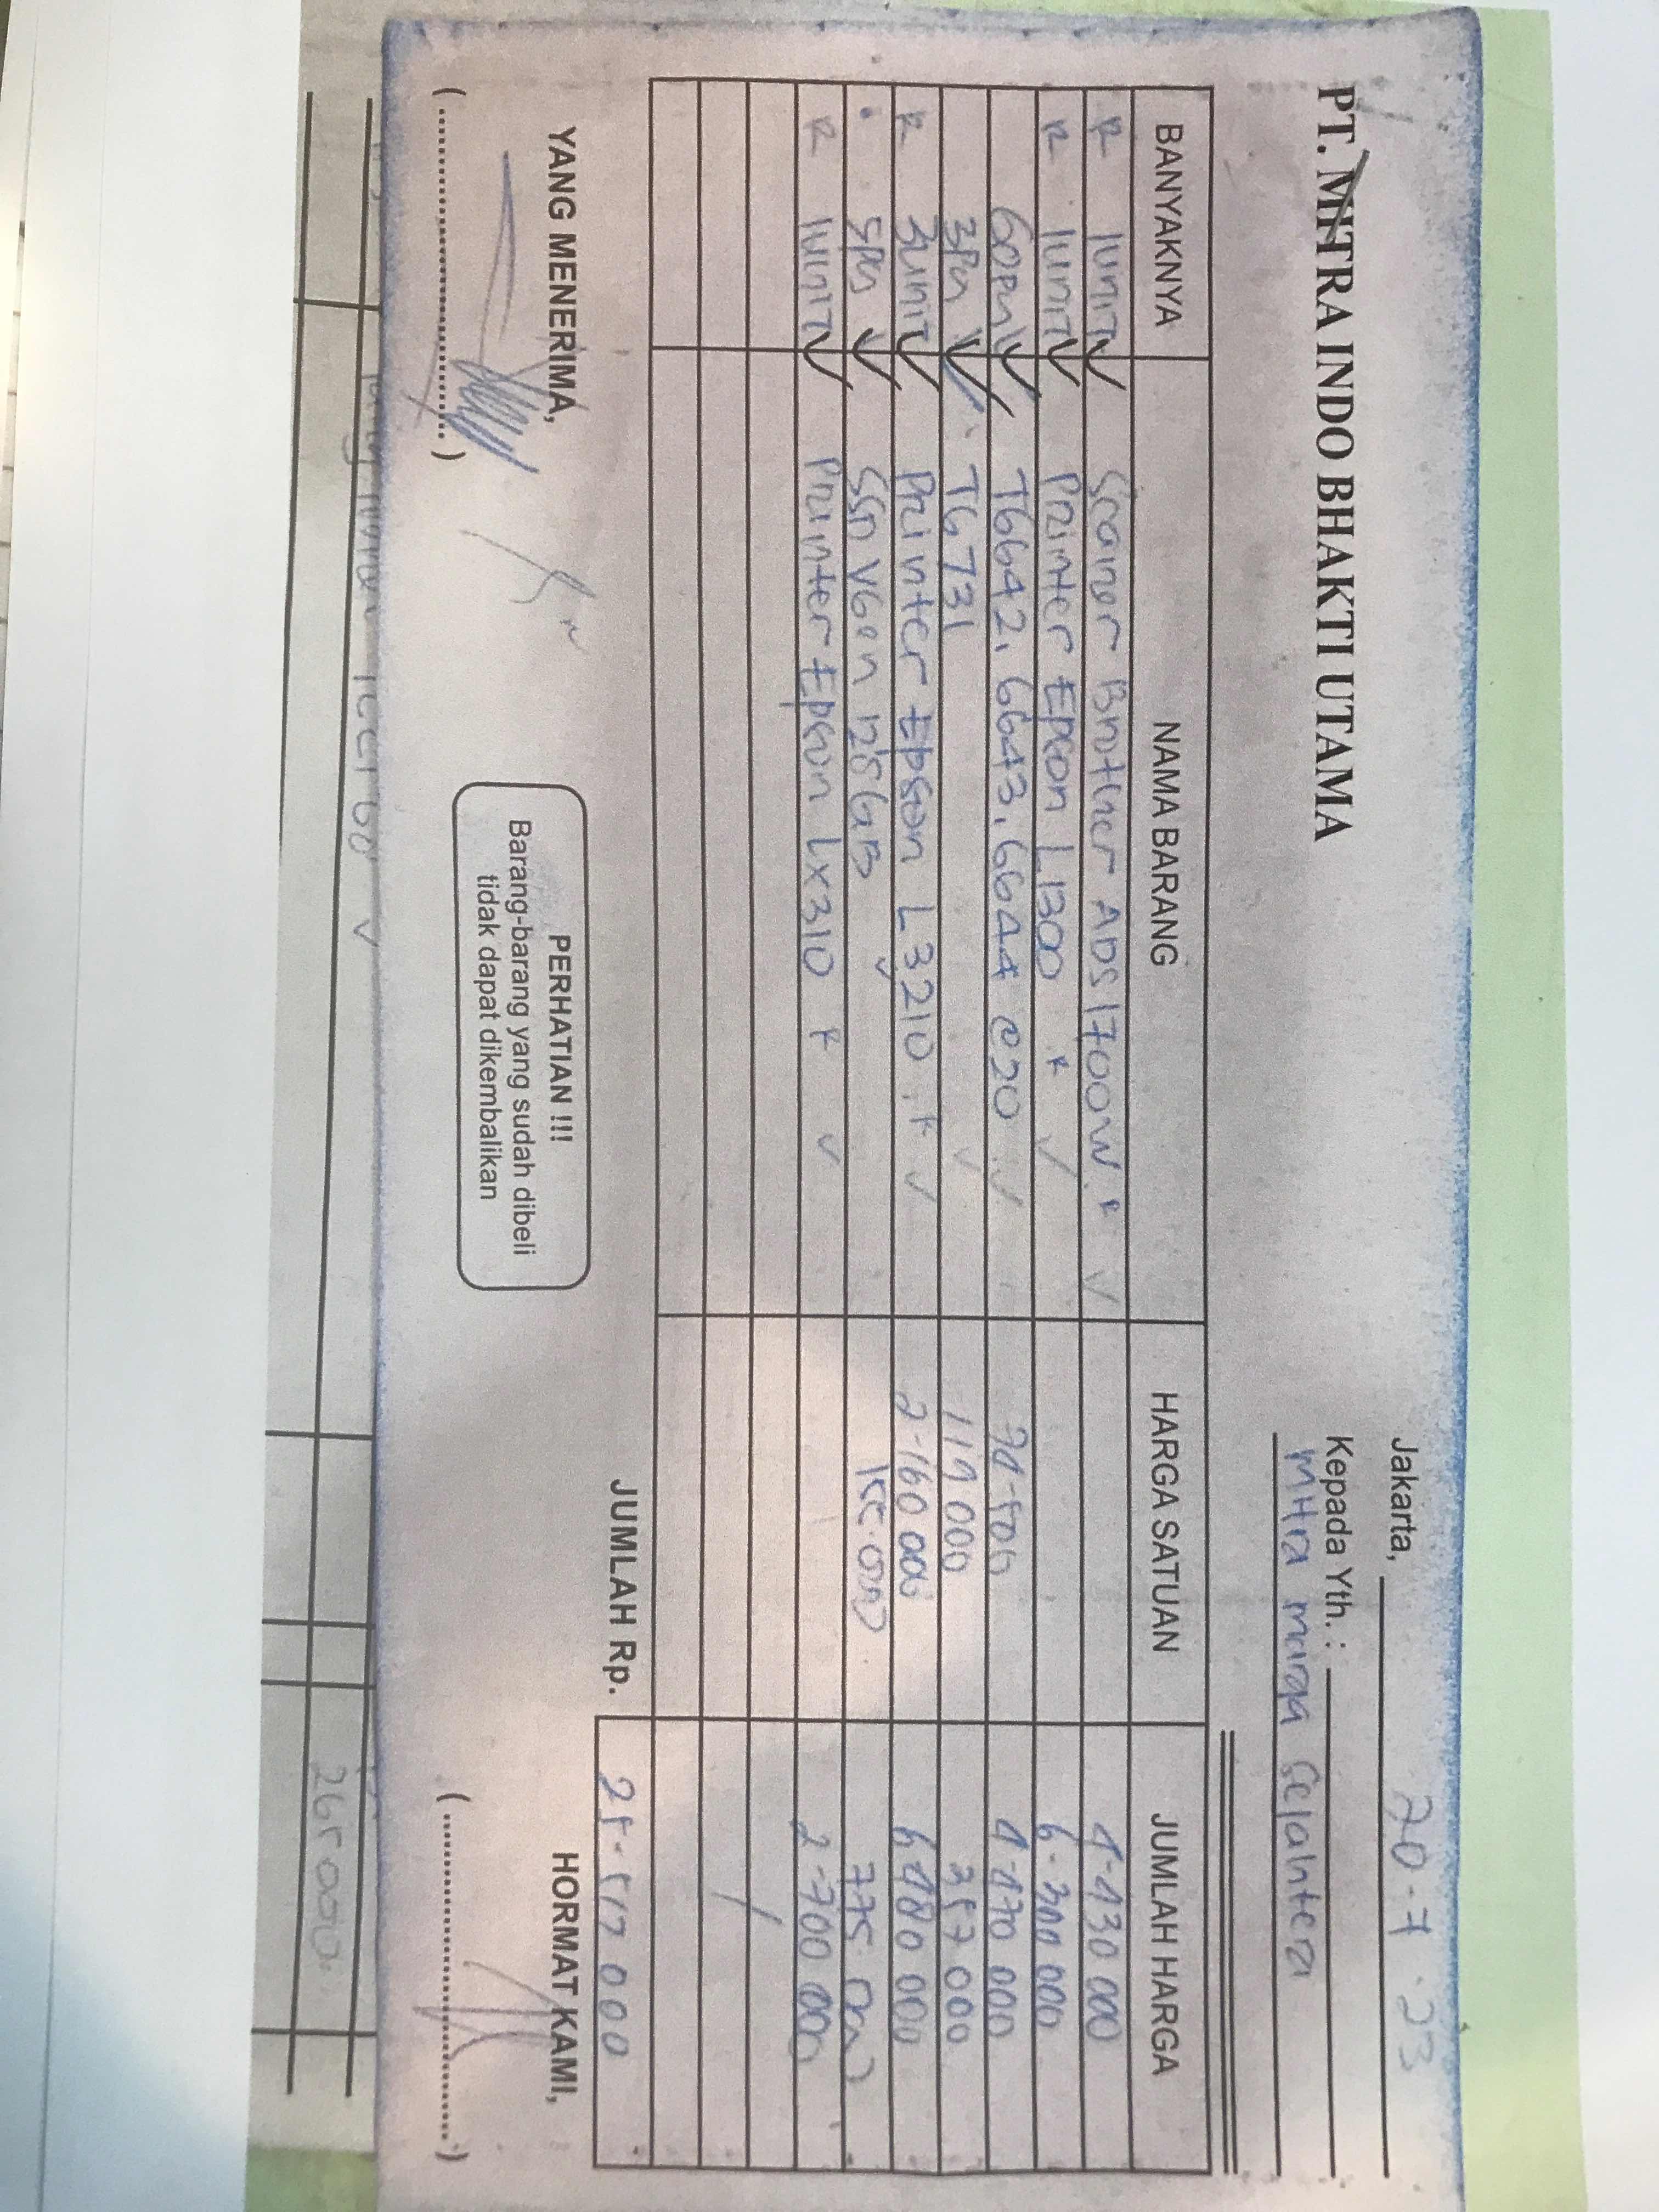 PT. MITRA INDO BHAKTI UTAMA
Jakarta, 20-7-23
Kepada Yth. :
Mitra marga sejahtera
BANYAKNYA NAMA BARANG HARGA SATUAN JUMLAH HARGA
R 1unit Scaner Brother ADS1700W * 4-430 000
R 1unit Printer Epson L1300 * 6-300 000
60pcs T6642, 6643, 6644 @20 74-500 4-470 000
3pcs T6731 119 000 357 000
R 3unit Printer Epson L3210 * 2-160 000 6 480 000
5pcs SSD VGen 128GB 155.000 775.000
R 1unit Printer Epson Lx310 * 2-700 000
JUMLAH Rp. 25-512 000
YANG MENERIMA,
PERHATIAN !!!
Barang-barang yang sudah dibeli
tidak dapat dikembalikan
HORMAT KAMI,
(....................)
(....................)